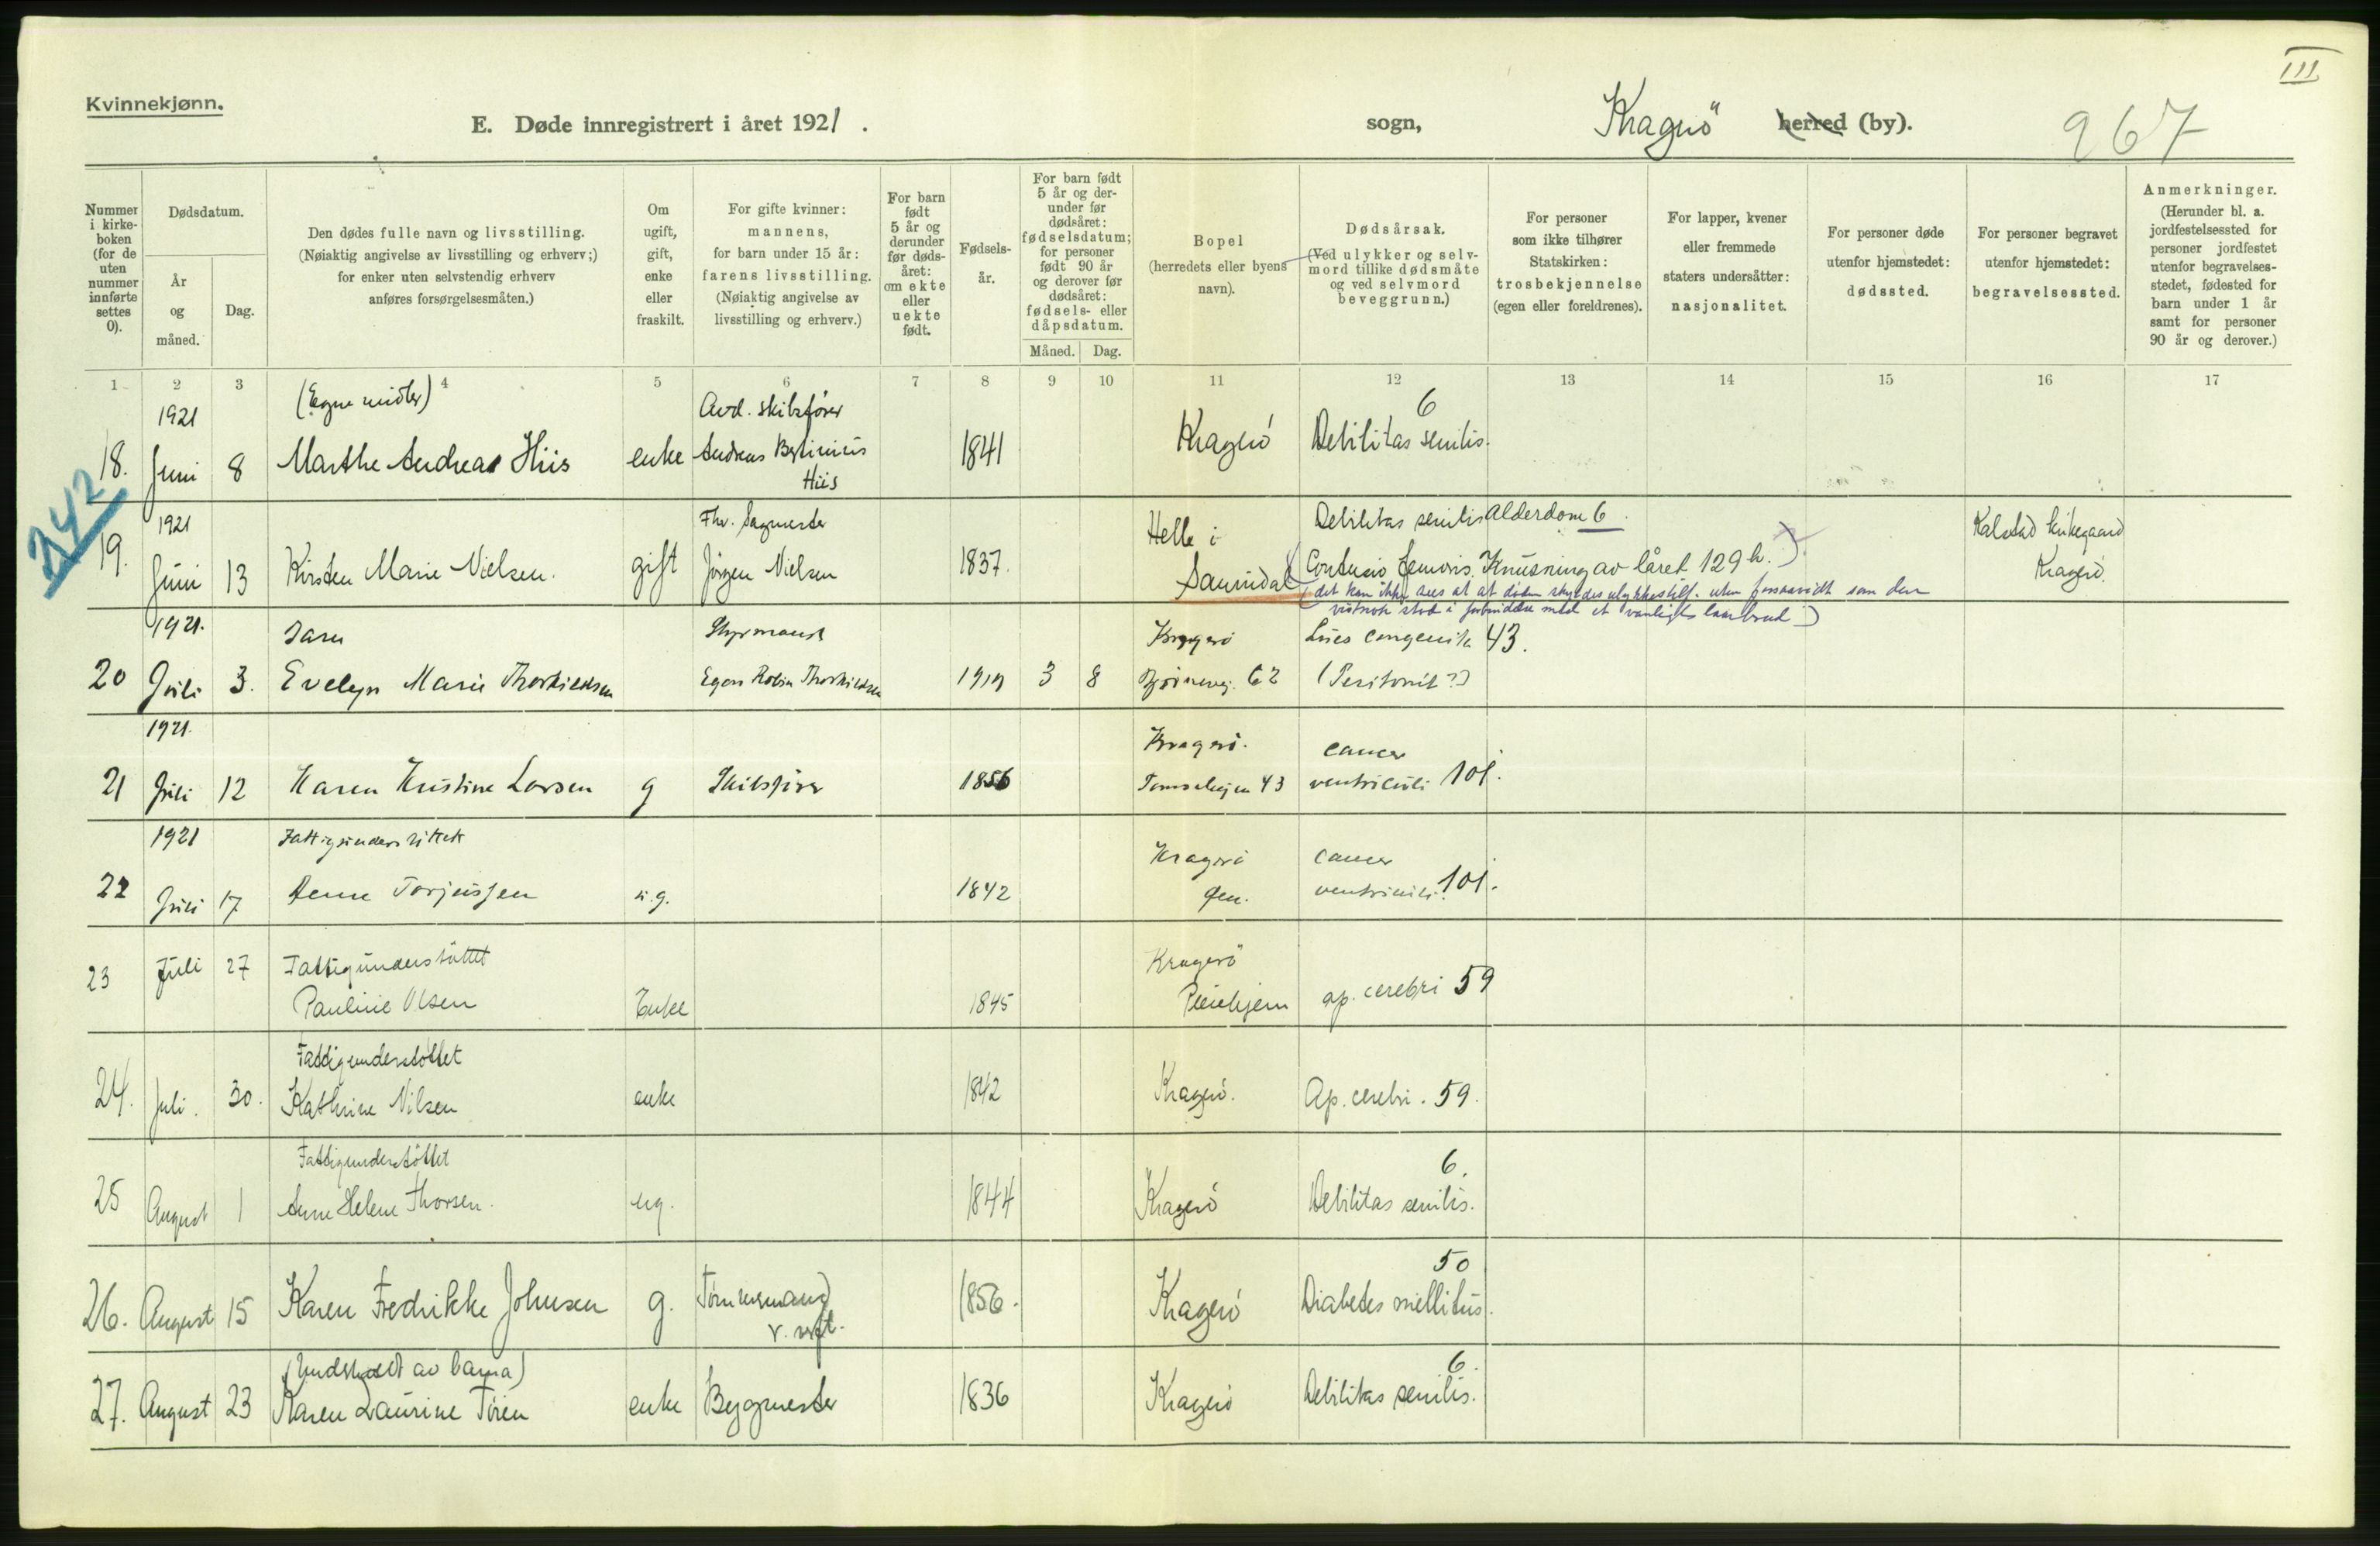 III
Kvinnekjønn.
E. Døde innregistrert i året 1921. sogn, Kragerö herred (by). 967
Nummer i kirkeboken (for de uten nummer innførte settes 0).
Dødsdatum.
År og måned.
Dag.
Den dødes fulle navn og livsstilling. (Nøiaktig angivelse av livsstilling og erhverv;) for enker uten selvstendig erhverv anføres forsørgelsesmåten.)
Om ugift, gift, enke eller fraskilt.
For gifte kvinner: mannens, for barn under 15 år: farens livsstilling. (Nøiaktig angivelse av livsstilling og erhverv.)
For barn født 5 år og derunder før dødsåret: om ekte eller uekte født.
Fødselsår.
For barn født 5 år og derunder før dødsåret: fødselsdatum; for personer født 90 år og derover før dødsåret: fødsels- eller dåpsdatum.
Måned. Dag.
Bopel (herredets eller byens navn).
Dødsårsak. (Ved ulykker og selvmord tillike dødsmåte og ved selvmord beveggrunn.)
For personer som ikke tilhører Statskirken: trosbekjennelse (egen eller foreldrenes).
For lapper, kvener eller fremmede staters undersåtter: nasjonalitet.
For personer døde utenfor hjemstedet: dødssted.
For personer begravet utenfor hjemstedet: begravelsessted.
Anmerkninger. (Herunder bl. a. jordfestelsessted for personer jordfestet utenfor begravelsesstedet, fødested for barn under 1 år samt for personer 90 år og derover.)
1 2 3 4 5 6 7 8 9 10 11 12 13 14 15 16 17
1921 (Egne midler) Avd. skibsfører 6
18. Juni 8 Marthe Andrea Hiis enke Andreas 1841 Kragerö Debilitas senilis.
Hiis
242
1921 Fhv. Sagmester Helle i Debilitas senilis Alderdom 6. Kalstad kirkegaard
19. Juni 13 Kirsten Marie Nielsen. gift Jörgen Nielsen 1837. Sannidal (Contusio femoris. Knusning av låret 129 h.) Kragerö.
(det kan ikke sees at at döden skyldes ulykkestilf. uten forsaavidt som den
vistnok stod i forbindelse med et vanligt laarbrud)
1921. Barn Styrmand Kragerö Lues congenita 43.
20 Juli 3. Evelyn Marie Thorkildsen Egon Robin Thorkildsen 1919 3 8 62 (Peritonit?)
1921. Kragerö. cancer
21 Juli 12 Karen Kristine Larsen g Skibsförer 1856 43 ventriculi 101.
1921 Fattigunderstöttet Kragerö cancer
22 Juli 17 Anne Torjussen u.g. 1842 ventriculi. 101.
23 Juli 27 Fattigunderstöttet Kragerö
Pauline Olsen Enke 1845 Pleiehjem ap. cerebri 59
Fattigunderstöttet
24. Juli. 30. Kathrine Nilsen enke 1842 Kragerö. Ap. cerebri. 59.
Fattigunderstöttet 6.
25 August 1 Anne Helene Thorsen. ug. 1844 Kragerö Debilitas senilis.
50
26. August 15 Karen Fredrikke Johnsen g. Tömmermand 1856. Kragerö Diabetes mellitus.
v. verft.
(Underholdt av barna) 6.
27. August 23 Karen Laurine Tören enke Bygmester 1836 Kragerö Debilitas senilis.